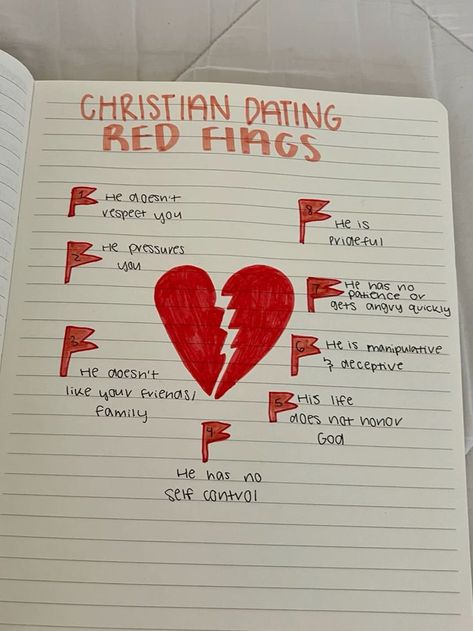 CHRISTIAN DATING
RED FlAGS
1
He doesn't
respect you
2
He pressures
you
3
He doesn't
like your friends/
family
4
He has no
self control
5
His life
does not honor
God
6
He is manipulative
& deceptive
7
He has no
patience or
gets angry quickly
8
He is
prideful